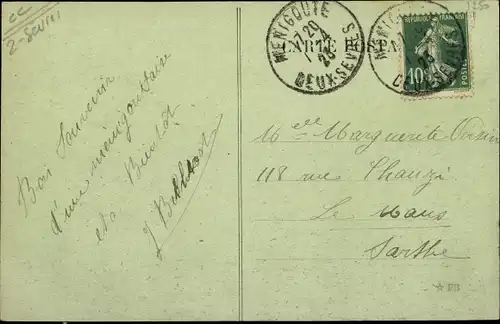 CC
2-Sevres
MENIGOUTE
7 20
1-4
23
DEUX-SEVRES
CARTE POSTA
MENIGO
DEUX-SEVRES
REPUBLIQUE FRANÇAISE
10
POSTES
Bon Souvenir
d'une ménigoutaise
et à Bientôt
J Billard
Melle Marguerite
118 rue Chanzi
Le Mans
Sarthe